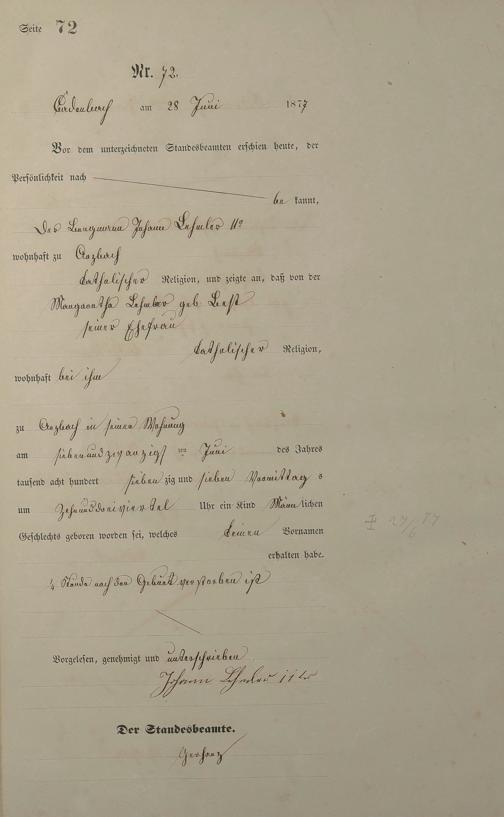 Seite 72
Nr. 72.
Cadenbach am 28 Juni 1877
Vor dem unterzeichneten Standesbeamten erschien heute, der
Persönlichkeit nach
be kannt,
Der Bergmann Johann Lehmler IIr
wohnhaft zu Arzbach
katholischer Religion, und zeigte an, daß von der
Margaretha Lehmler geb
seiner Ehefrau
katholischer Religion,
wohnhaft bei ihm
zu Arzbach in seiner Wohnung
am siebenundzwanzigst en Juni des Jahres
tausend acht hundert sieben zig und sieben Vormittag s
um Zehnunddreiviertel Uhr ein Kind Männ lichen
Geschlechts geboren worden sei, welches keinen Vornamen
erhalten habe.
¼ Stunde nach der Geburt verstorben ist
Vorgelesen, genehmigt und unterschrieben
Johann Lehmler IIter
Der Standesbeamte.
Gerharz
‡ 27/6 77